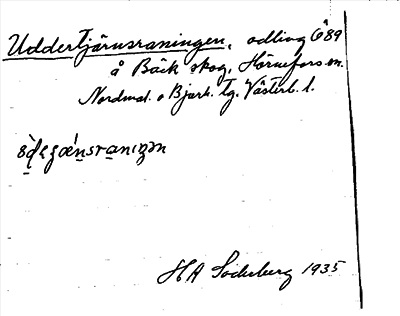 Uddertjärnsraningen, odling Ö89
å Bäck skog, Hörnefors sn.
Nordmal. o Bjurh. tg. Västerb. l.
HA Söderberg 1935